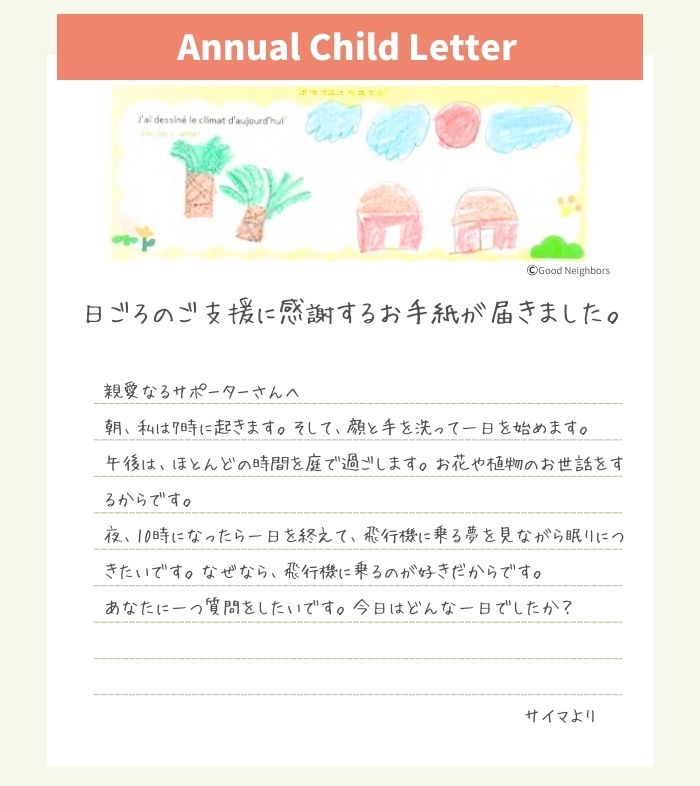 Annual Child Letter
J'ai dessiné le climat d'aujourd'hui
©Good Neighbors
日ごろのご支援に感謝するお手紙が届きました。
親愛なるサポーターさんへ
朝、私は7時に起きます。そして、顔と手を洗って一日を始めます。
午後は、ほとんどの時間を庭で過ごします。お花や植物のお世話をす
るからです。
夜、10時になったら一日を終えて、飛行機に乗る夢を見ながら眠りにつ
きたいです。なぜなら、飛行機に乗るのが好きだからです。
あなたに一つ質問をしたいです。今日はどんな一日でしたか？
サイマより